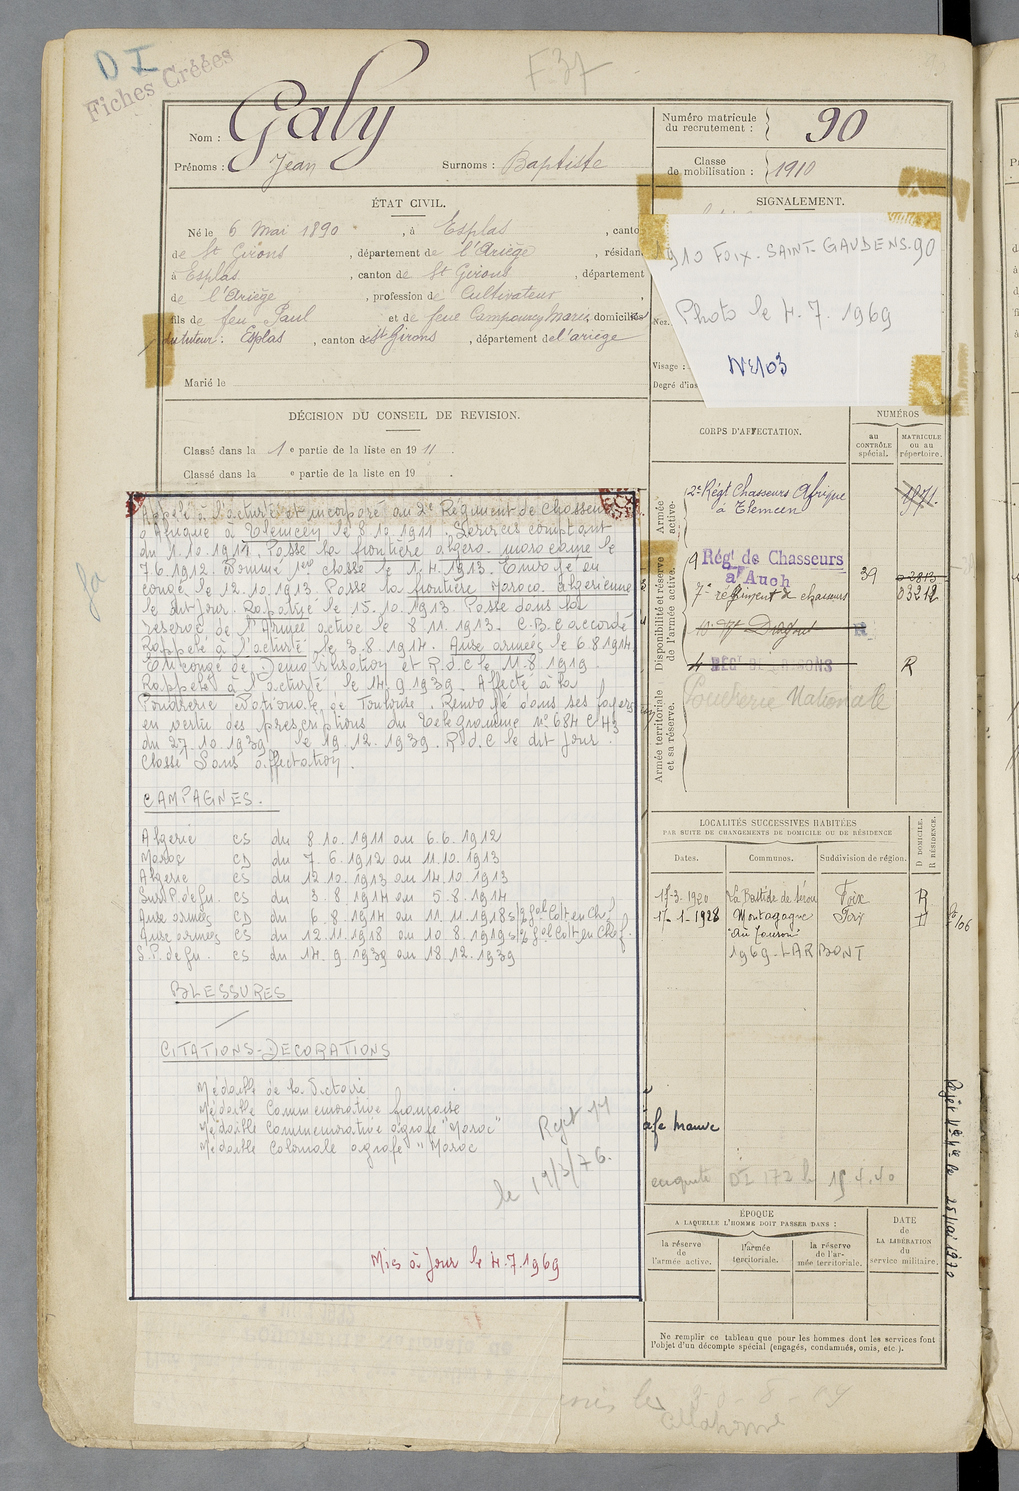 DI
Fiches Créées
F 37
Nom : Galy
Prénoms : Jean Surnoms : Baptiste
Numéro matricule du recrutement : 90
Classe de mobilisation : 1910
ÉTAT CIVIL.
Né le 6 Mai 1890, à Esplas, canto
de St Girons, département de l'Ariège, résidan
à Esplas, canton de St Girons, département
de l'Ariège, profession de Cultivateur
fils de feu Paul et de feue Marie domiciliés
du tuteur : Esplas, canton de St Girons, département de l'ariège
Marié le
DÉCISION DU CONSEIL DE REVISION.
Classé dans la 1e partie de la liste en 1911.
Classé dans la e partie de la liste en 19 .
SIGNALEMENT.
1910 FOIX-SAINT-GAUDENS-90
Photo le 4.7.1969
Nez.
Visage :
Degré d'ins
Appelé à l'activité et incorporé au 2e Régiment de Chasseurs
d'Afrique à Tlemcen le 8.10.1911. Services comptant
du 1.10.1911. Passé la frontière algero-marocaine le
7.6.1912. Nommé 1ere classe le 1.4.1913. Envoyé en
congé le 12.10.1913. Passé la frontière Maroco-Algerienne
le dit jour. Rapatrié le 15.10.1913. Passé dans la
réserve de l'Armée active le 8.11.1913. C.B.C accordé
Rappelé à l'activité le 3.8.1914. Aux armées le 6.8.1914
En congé de Démobilisation et R.d.C le 11.8.1919
Rappelé à l'activité le 14.9.1939. Affecté à la
Poudrerie Nationale de Toulouse. Renvoyé dans ses foyers
en vertu des prescriptions du Telegramme n° 684 C H3
du 27.10.1939 le 19.12.1939. R.d.C le dit jour.
Classé Sans affectation.
CAMPAGNES.
Algerie CS du 8.10.1911 au 6.6.1912
Maroc CD du 7.6.1912 au 11.10.1913
Algerie CS du 12.10.1913 au 14.10.1913
CS du 3.8.1914 au 5.8.1914
Aux armées CD du 6.8.1914 au 11.11.1918
Aux armées CS du 12.11.1918 au 10.8.1919
CS du 14.9.1939 au 18.12.1939
BLESSURES
CITATIONS-DECORATIONS
Médaille de la Victoire
Médaille Commemorative française
Médaille Commemorative agrafe "Maroc"
Médaille Coloniale agrafe "Maroc
le 19/3/76.
Mis à Jour le 4.7.1969
CORPS D'AFFECTATION.
NUMÉROS
au CONTRÔLE spécial.
MATRICULE ou au répertoire.
Armée active.
2e Régt Chasseurs Afrique
à Tlemcen
1971
Disponibilité et réserve de l'armée active.
9 Régt de Chasseurs
à Auch
39
7e régiment de chasseurs 03212
R
Armée territoriale et sa réserve.
Poudrerie Nationale
LOCALITÉS SUCCESSIVES HABITÉES
PAR SUITE DE CHANGEMENTS DE DOMICILE OU DE RÉSIDENCE
D DOMICILE.
R RÉSIDENCE.
Dates. Communes. Subdivision de région.
17-3-1920 La Bastide de Sérou Foix R
17-1-1928 Montagagne Foix D
1969-LARBONT
agrafe Maroc
enquête DI 172 le 15 4.40
ÉPOQUE
A LAQUELLE L'HOMME DOIT PASSER DANS :
la réserve de l'armée active.
l'armée territoriale.
la réserve de l'armée territoriale.
DATE de LA LIBÉRATION du service militaire.
Ne remplir ce tableau que pour les hommes dont les services font
l'objet d'un décompte spécial (engagés, condamnés, omis, etc.).